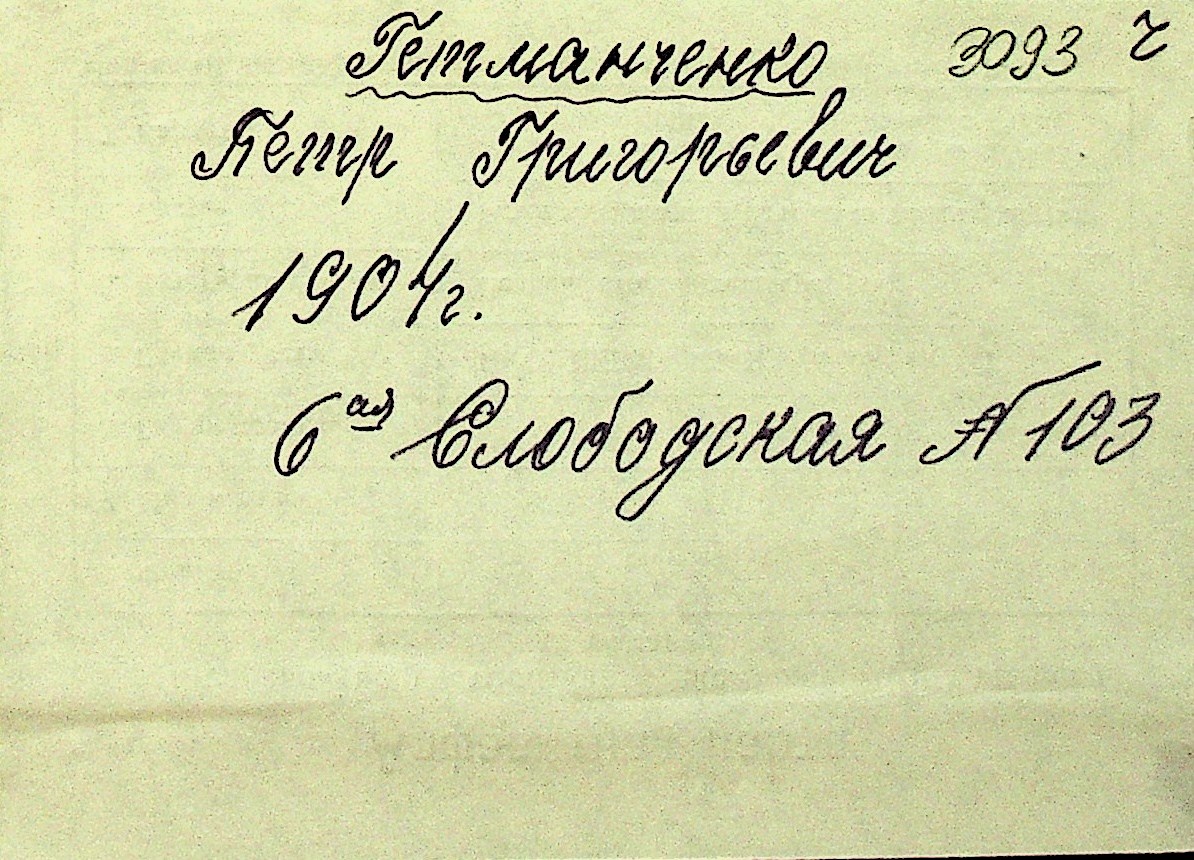 Гетманченко 3093 г
Петр Григорьевич
1904г.
6ая Слободская №103